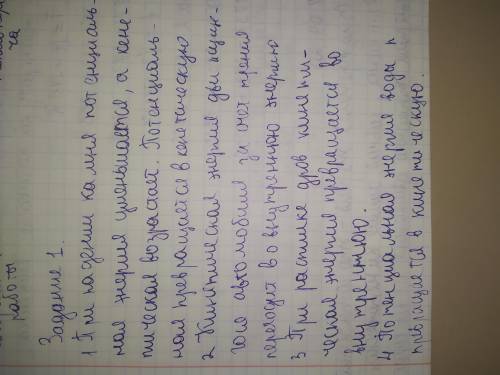 работы
ча
Задание 1.
1 При падении камня потенциаль-
ная энергия уменьшается, а кине-
тическая возрастает. Потенциаль-
ная превращается в кинетическую
2 Кинетическая энергия
гося автомобиля за счет трения
переходит во внутреннюю энергию
3 При распилке дров кинети-
ческая энергия превращается во
внутреннюю.
4 Потенциальная энергия воды п
превращается в кинетическую.